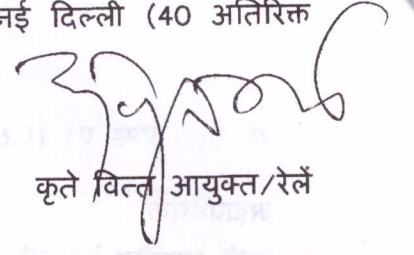 नई दिल्ली (40 अतिरिक्त
कृते वित्त आयुक्त/रेलें